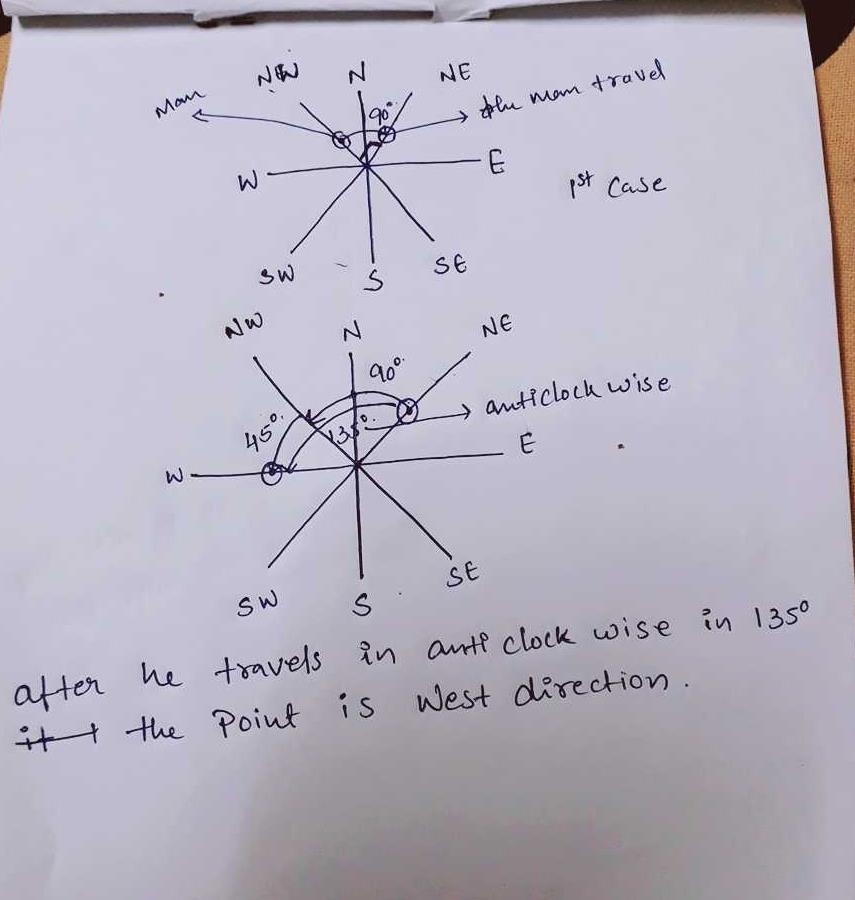 NW N NE
Man
90°
the man travel
W E
1st case
SW S SE
NW N NE
90°
anticlock wise
45°
135°
W E
SW S SE
after he travels in anti clock wise in 135°
it the Point is West direction.